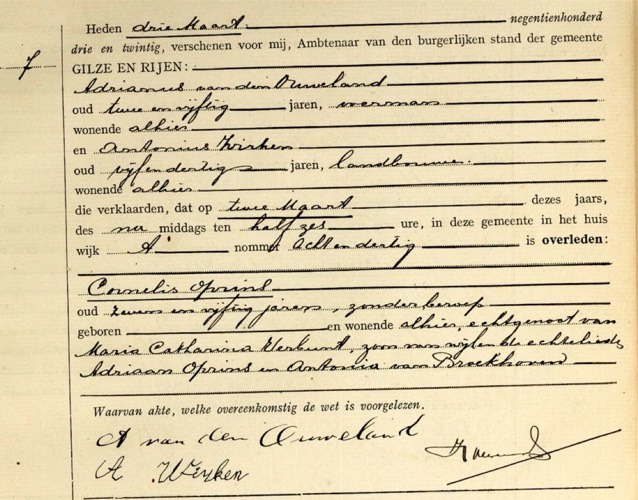 Heden drie Maart negentienhonderd
drie en twintig, verschenen voor mij, Ambtenaar van den burgerlijken stand der gemeente
7
GILZE EN RIJEN:
Adrianus van den Ouweland
oud twee en vijftig jaren, voerman
wonende alhier
en Antonius
oud vijfendertig jaren, landbouwer
wonende alhier
die verklaarden, dat op twee Maart dezes jaars,
des na middags ten half zes ure, in deze gemeente in het huis
wijk A nommer acht en dertig is overleden:
Cornelis Oprins
oud zeven en vijftig jaren, zonder beroep
geboren en wonende alhier, echtgenoot van
Maria Catharina Verbunt, zoon van wijlen de echtelieden
Adriaan Oprins en Antonia van Broekhoven
Waarvan akte, welke overeenkomstig de wet is voorgelezen.
A van den Ouweland
A